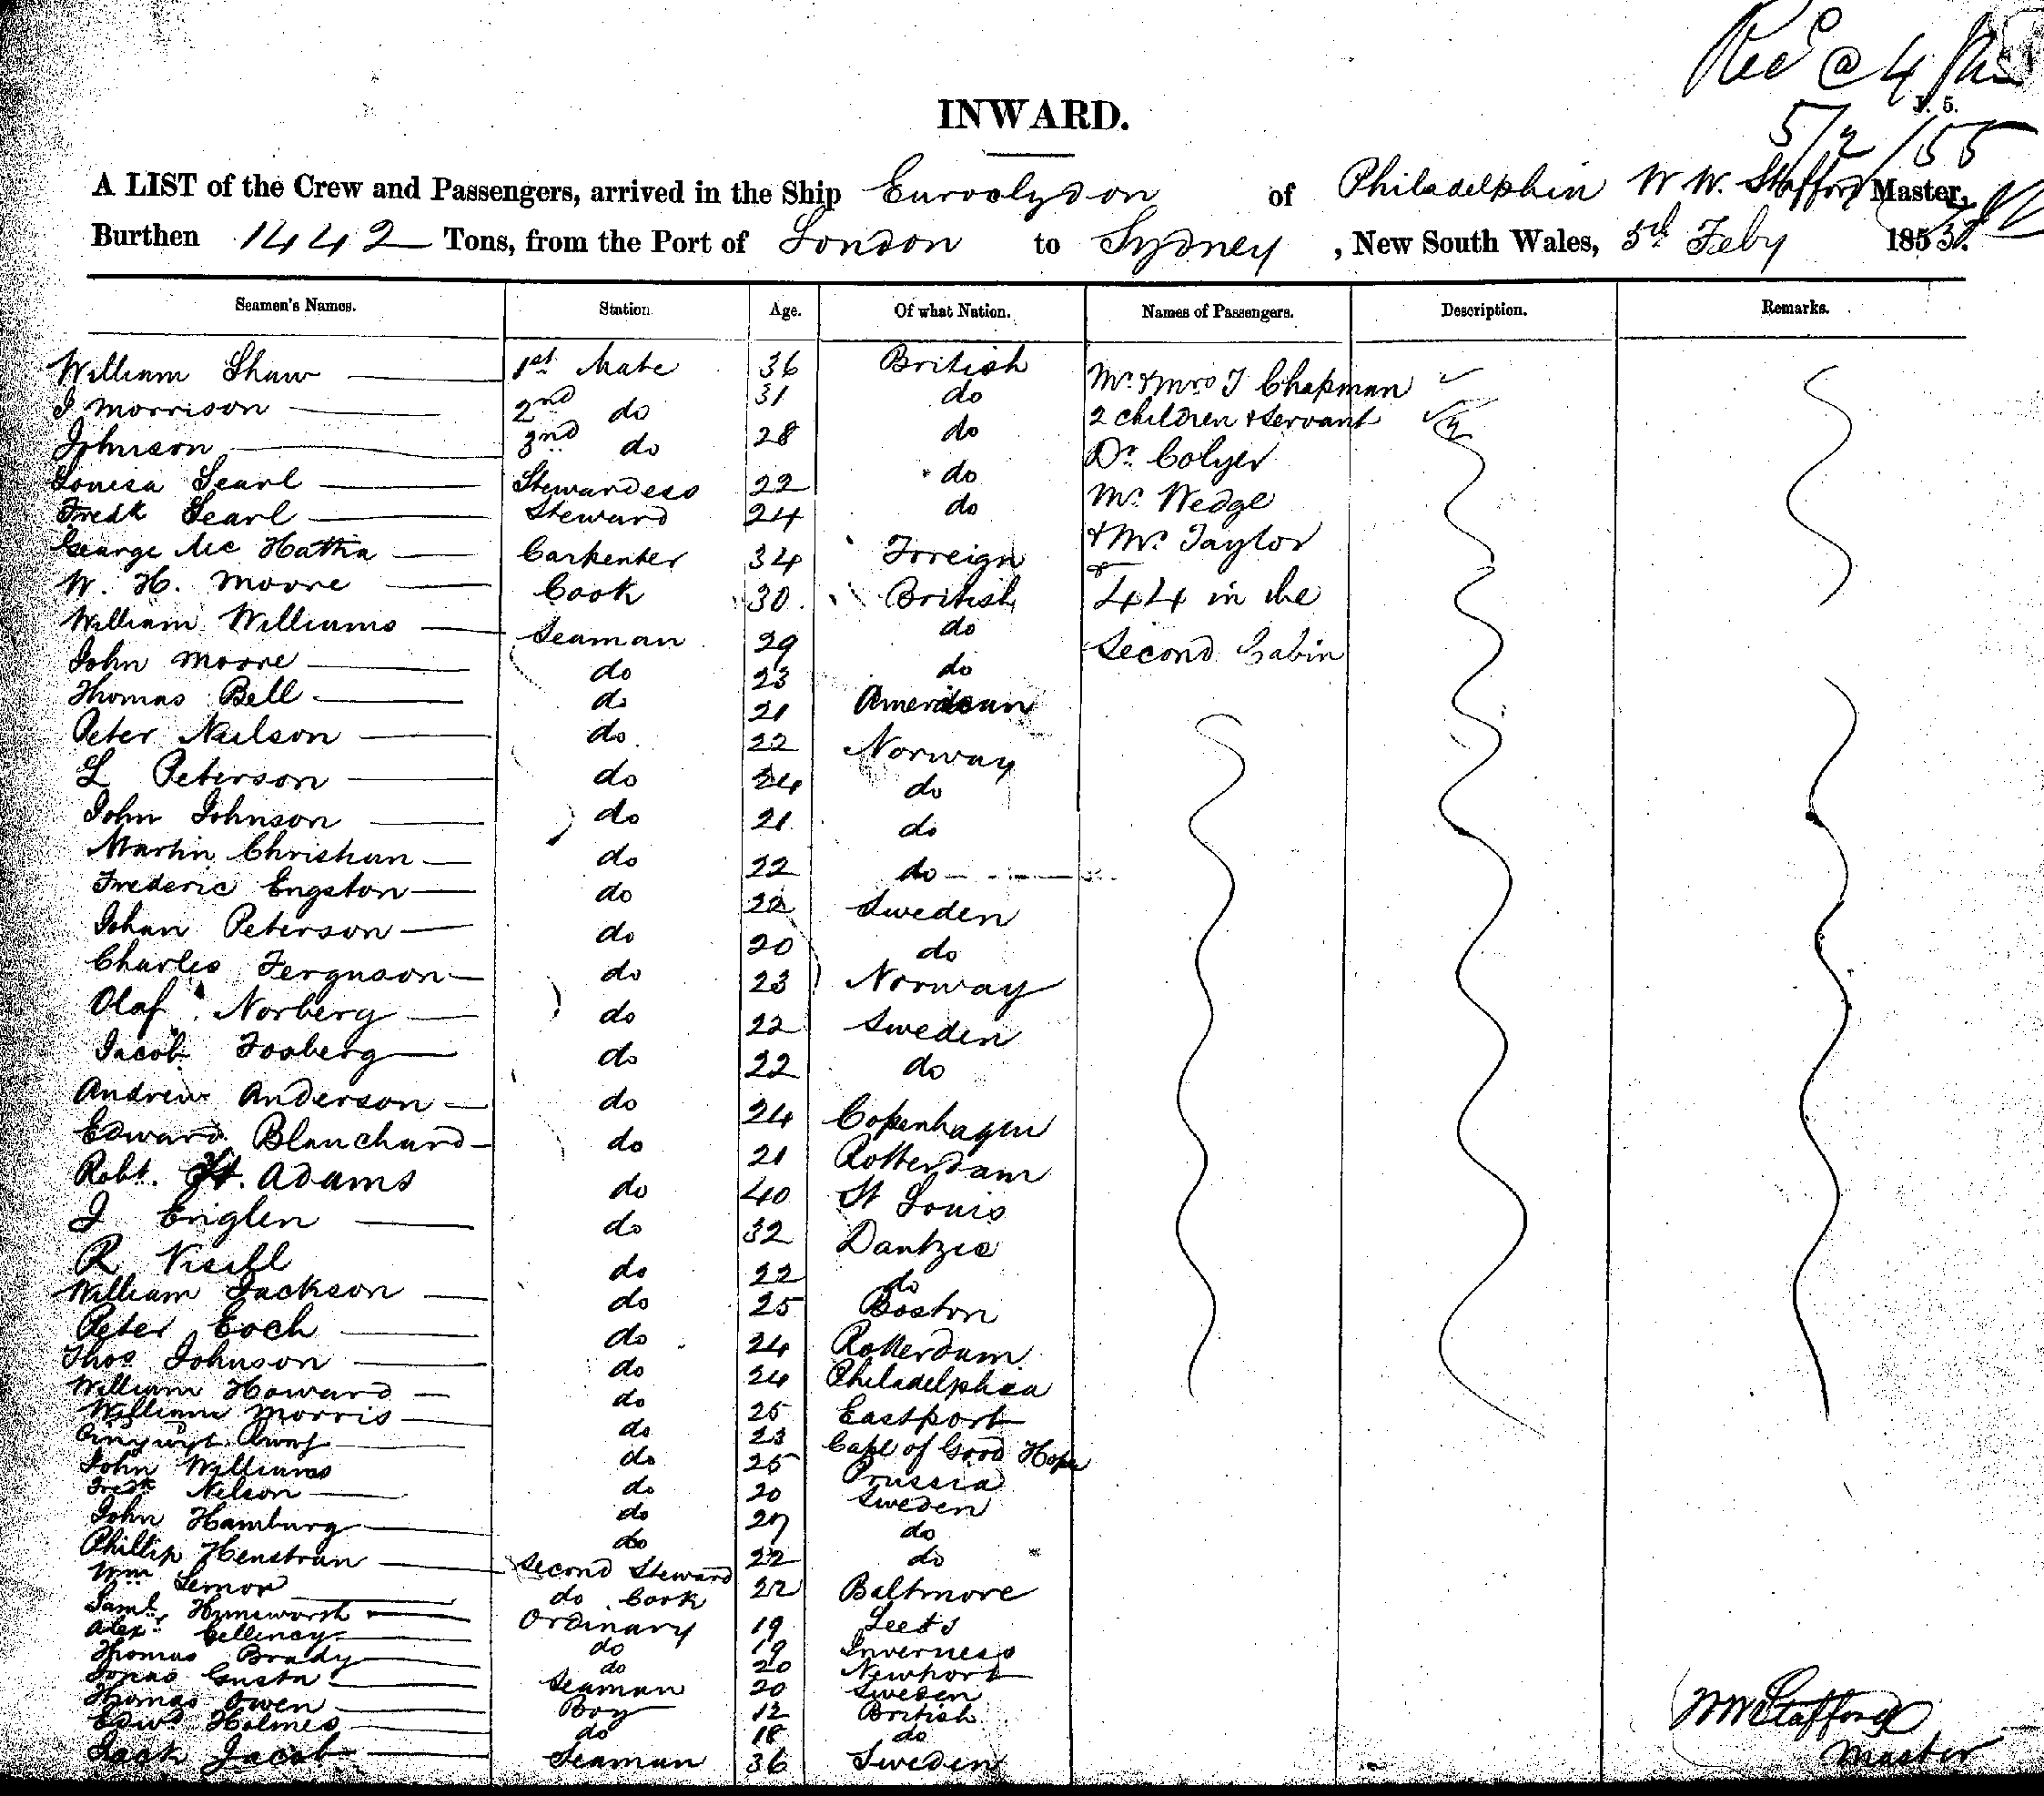 Recd @ 4 Pm
J. 5.
5/2/55
INWARD.
A LIST of the Crew and Passengers, arrived in the Ship Euroclydon of Philadelphia W W. Stafford Master,
Burthen 1442 Tons, from the Port of London to Sydney, New South Wales, 5th Feby 185
Seamen's Names. Station Age. Of what Nation. Names of Passengers. Description. Remarks.
William Shaw 1st Mate 36 British Mr & Mrs J Chapman
J Morrison 2nd do 31 do 2 children & servant
Johnson 3nd do 28 do Dr. Colyer
Louisa Searl Stewardess 22 do Mr. Wedge
Fredk Searl Steward 24 do & Mr. Taylor
George Mc Hatha Carpenter 34 Foreign &
W. H. Moore Cook 30. British 44 in the
William Williams Seaman 29 do Second Cabin
John Moore do 23 do
Thomas Bell do 21 American
Peter Neilson do 22 Norway
L Peterson do 24 do
John Johnson do 21 do
Martin Christian do 22 do
Frederic Engston do 22 Sweden
Johan Peterson do 20 do
Charles Ferguson do 23 Norway
Olaf Norberg do 22 Sweden
Jacob Fosberg do 22 do
Andrew Anderson do 24 Copenhagen
Edward Blanchard do 21 Rotterdam
Robt. H. Adams do 40 St Louis
J Englen do 32 Dantzic
R do 22 do
William Jackson do 25 Boston
Peter Coch do 24 Rotterdam
Thos Johnson do 24 Philadelphia
William Howard do 25 Eastport
William Morris do 23 Cape of Good Hope
do 25 Prussia
John Williams do 20 Sweden
Fredk Nelson do 27 do
John Hamburg do 22 do
Phillip Henstran Second Steward 22 Baltmore
Wm Lemon do Cook 19 Leeds
Saml. Hunsworth Ordinary 19 Inverness
Alex. do 20 Newport
Thomas Brady do 20 Sweden
Jonas Gusta Seaman 12 British
Thomas Owen Boy 18 do
Edwd Holmes do 36 Sweden
Jack Jacob Seaman
W W Stafford
Master